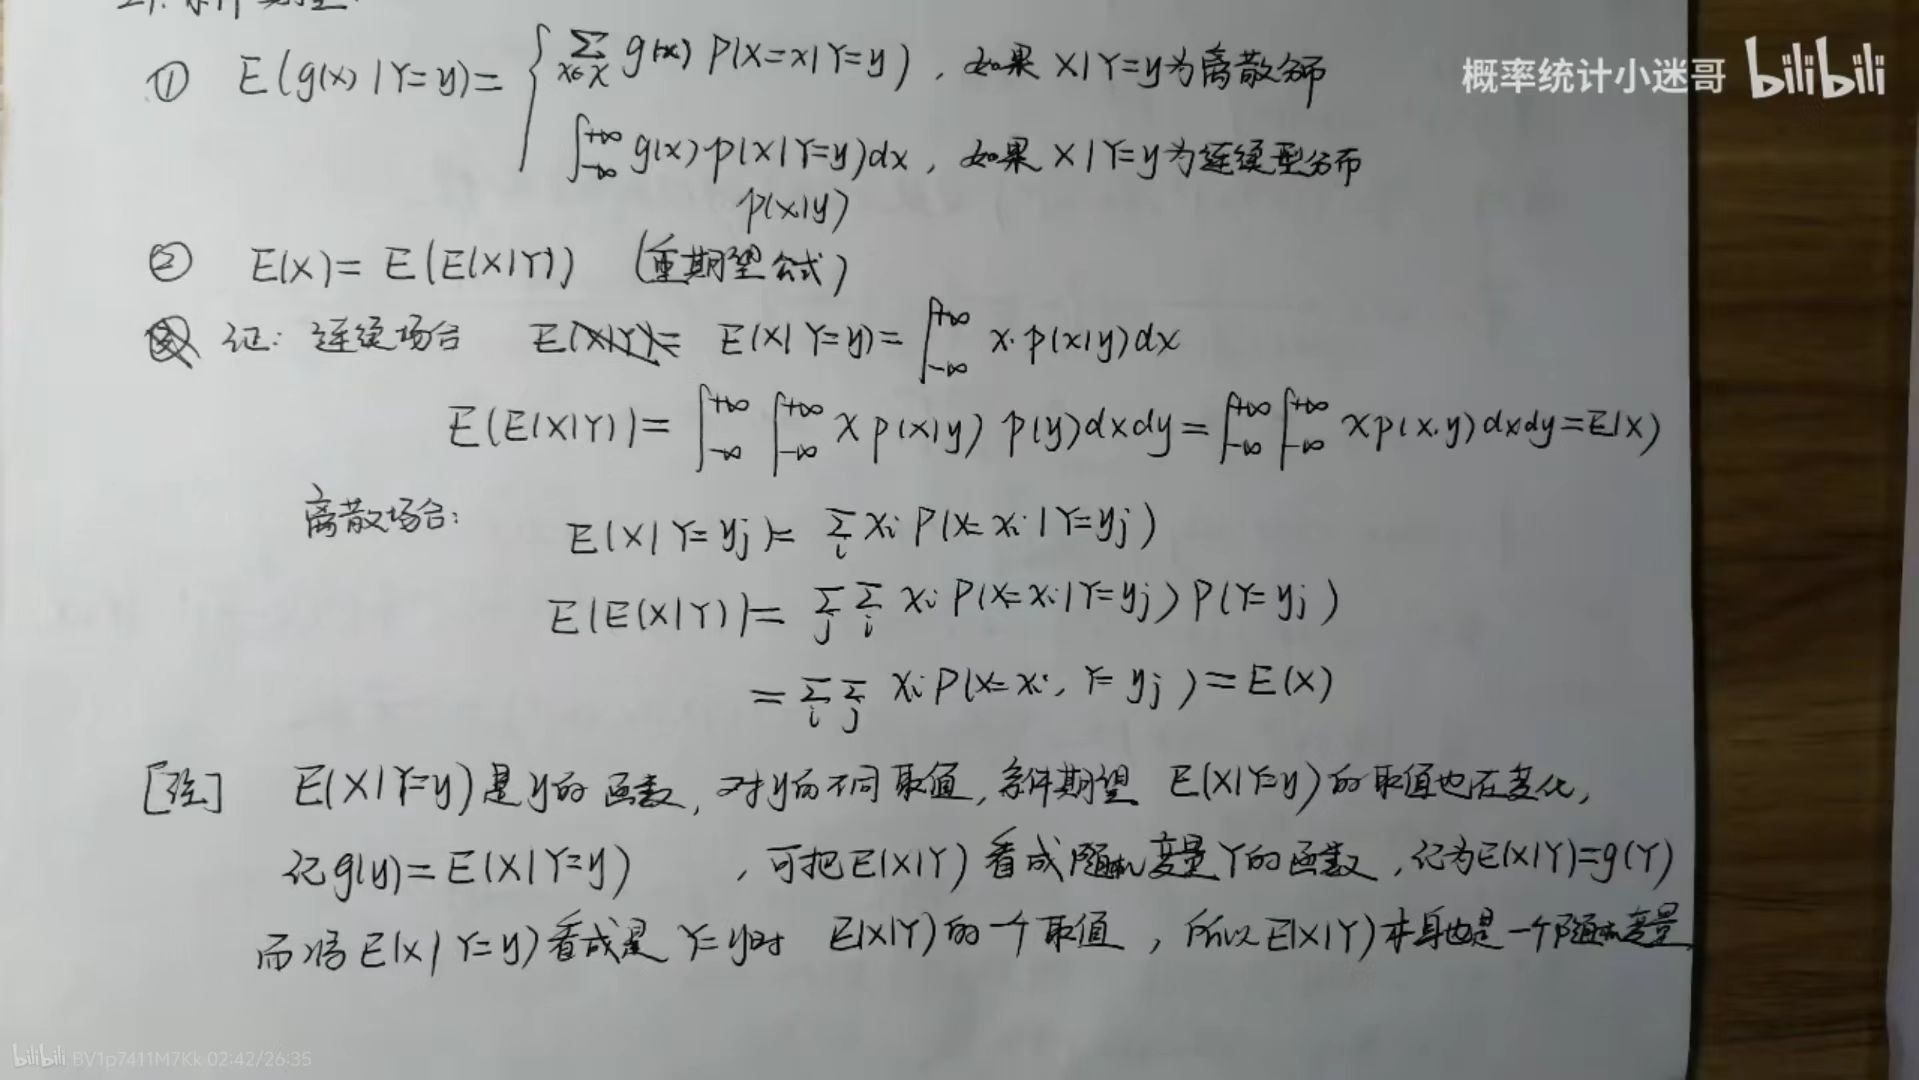 21. 条件期望:
① E(g(x)|Y=y)= { ∑_{x∈X} g(x) P(X=x|Y=y), 如果 X|Y=y为离散分布
∫_{-∞}^{+∞} g(x) p(x|Y=y)dx, 如果 X|Y=y为连续型分布
p(x|y)
概率统计小迷哥 bilibili
② E(X)= E(E(X|Y)) (重期望公式)
证: 连续场合 E(X|Y)= E(X|Y=y)= ∫_{-∞}^{+∞} x·p(x|y)dx
E(E(X|Y))= ∫_{-∞}^{+∞} ∫_{-∞}^{+∞} x p(x|y) p(y)dxdy= ∫_{-∞}^{+∞} ∫_{-∞}^{+∞} xp(x,y)dxdy=E(X)
离散场合:
E(X|Y=yj)= ∑_i xi P(X=xi|Y=yj)
E(E(X|Y))= ∑_j ∑_i xi P(X=xi|Y=yj)P(Y=yj)
= ∑_i ∑_j xi P(X=xi, Y=yj)=E(X)
[注] E(X|Y=y)是y的函数, 对y的不同取值, 条件期望 E(X|Y=y)的取值也在变化,
记g(y)=E(X|Y=y) , 可把E(X|Y)看成随机变量Y的函数, 记为E(X|Y)=g(Y)
而将E(X|Y=y)看成是 Y=y时 E(X|Y)的一个取值, 所以E(X|Y)本身也是一个随机变量
bilibili BV1p7411M7Kk 02:42/26:35